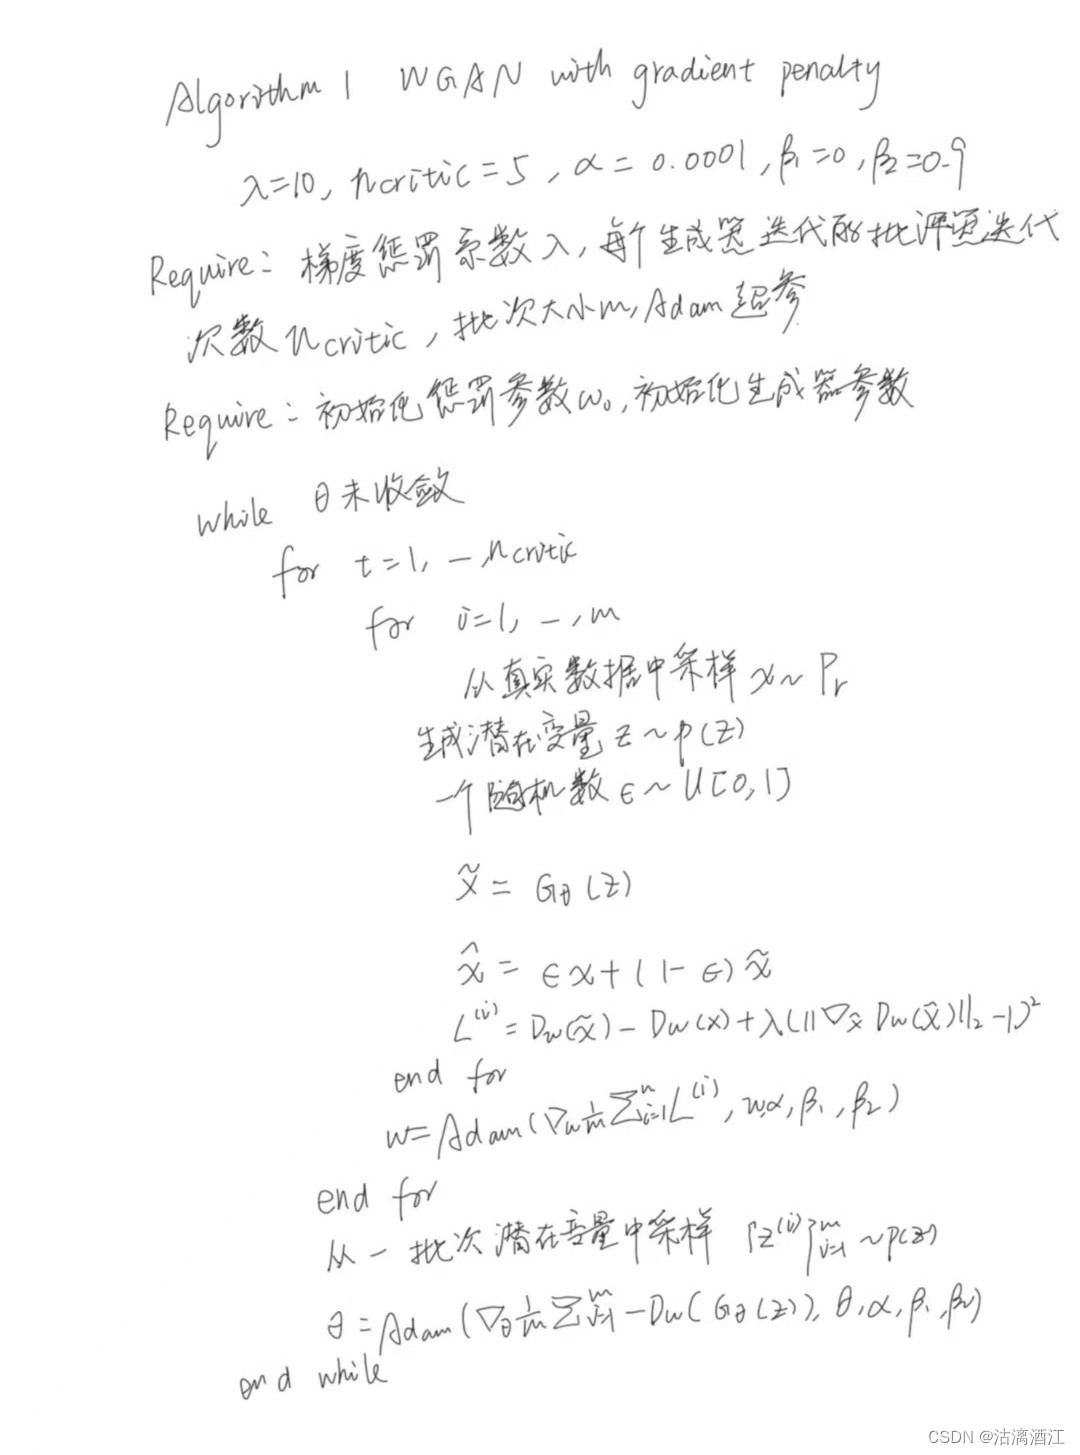 Algorithm 1 WGAN with gradient penalty
λ=10, ncritic=5, α=0.0001, β₁=0, β₂=0.9
Require: 梯度惩罚系数λ, 每个生成器迭代的批评器迭代
次数ncritic, 批次大小m, Adam超参
Require: 初始化惩罚参数w₀, 初始化生成器参数
while θ未收敛
for t=1, —, ncritic
for i=1, —, m
从真实数据中采样 x~Pr
生成潜在变量 z~p(z)
一个随机数 ϵ~U[0,1]
x̃ = Gθ(z)
x̂ = ϵx+(1-ϵ)x̃
L⁽ⁱ⁾ = Dw(x̃) - Dw(x) + λ(||∇x̂ Dw(x̂)||₂-1)²
end for
w=Adam(∇w 1/m Σᵐᵢ₌₁ L⁽ⁱ⁾, w,α, β₁, β₂)
end for
从一批次潜在变量中采样 {z⁽ⁱ⁾}ᵐᵢ₌₁ ~p(z)
θ=Adam(∇θ 1/m Σᵐᵢ₌₁ -Dw(Gθ(z)), θ, α, β₁, β₂)
end while
CSDN @沽漓酒江